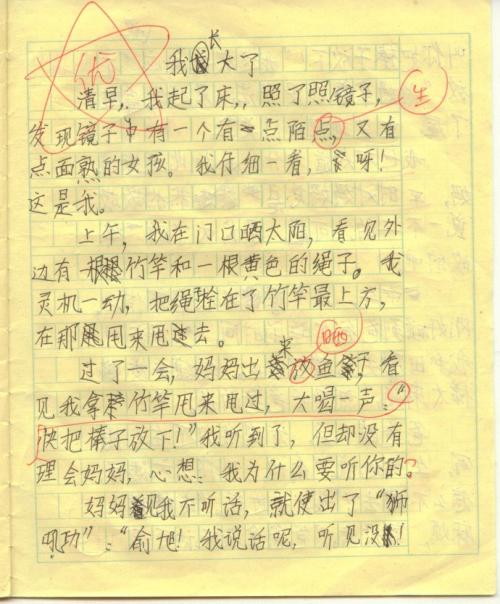 优
我长大了
清早,我起了床,照了照镜子,
生
发现镜子中有一个有一点陌点,又有
点面熟的女孩。我仔细一看,呀!
这是我。
上午,我在门口晒太阳,看见外
边有一根竹竿和一根黄色的绳子。我
灵机一动,把绳拴在了竹竿最上方,
在那甩来甩去。
晒
过了一会,妈妈出来放鱼干,看
见我拿竹竿甩来甩过,大喝一声:“
快把棒子放下!”我听到了,但却没有
理会妈妈,心想:我为什么要听你的?
妈妈见我不听话,就使出了“狮
吼功”:“俞旭!我说话呢,听见没!